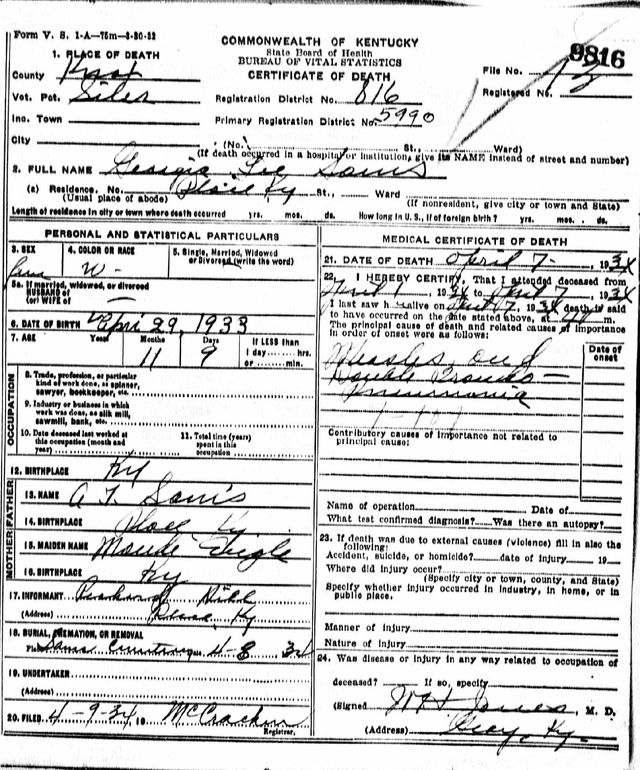 Form V. S. 1-A—75m—3-30-32
COMMONWEALTH OF KENTUCKY
State Board of Health
BUREAU OF VITAL STATISTICS
CERTIFICATE OF DEATH
9816
1. PLACE OF DEATH
County Knox
File No. 12
Vot. Pct. Siler
Registration District No. 816
Registered No.
Inc. Town
Primary Registration District No. 5990
City (No. St., Ward)
(If death occurred in a hospital or institution, give its NAME instead of street and number)
2. FULL NAME Georgia Lee
(a) Residence. No. Ky St., Ward
(Usual place of abode) (If nonresident, give city or town and State)
Length of residence in city or town where death occurred yrs. mos. ds. How long in U. S., if of foreign birth? yrs. mos. ds.
PERSONAL AND STATISTICAL PARTICULARS
3. SEX 4. COLOR OR RACE 5. Single, Married, Widowed
or Divorced (write the word)
Fem W -
5a. If married, widowed, or divorced
HUSBAND of
(or) WIFE of —
6. DATE OF BIRTH Apri 29, 1933
7. AGE Years Months Days If LESS than
11 9 1 day hrs.
or min.
OCCUPATION
8. Trade, profession, or particular
kind of work done, as spinner,
sawyer, bookkeeper, etc.
9. Industry or business in which
work was done, as silk mill,
sawmill, bank, etc.
10. Date deceased last worked at
this occupation (month and
year)
11. Total time (years)
spent in this
occupation
12. BIRTHPLACE Ky
FATHER
13. NAME A T.
14. BIRTHPLACE Ky.
MOTHER
15. MAIDEN NAME Maude
16. BIRTHPLACE Ky
17. INFORMANT
(Address) Ky
18. BURIAL, CREMATION, OR REMOVAL
Place Date 4-8 34
19. UNDERTAKER
(Address)
20. FILED 4-9-34, 19 McCracken
Registrar.
MEDICAL CERTIFICATE OF DEATH
21. DATE OF DEATH April 7- 1934
22. I HEREBY CERTIFY, That I attended deceased from
April 1, 1934 to April 7, 1934
I last saw h alive on April 7, 1934 death is said
to have occurred on the date stated above, at m.
The principal cause of death and related causes of importance
in order of onset were as follows:
Date of
onset
Measles and
Double Broncho—
pneumonia
Contributory causes of importance not related to
principal cause:
Name of operation Date of
What test confirmed diagnosis? Was there an autopsy?
23. If death was due to external causes (violence) fill in also the
following:
Accident, suicide, or homicide? date of injury 19
Where did injury occur?
(Specify city or town, county, and State)
Specify whether injury occurred in industry, in home, or in
public place.
Manner of injury
Nature of injury
24. Was disease or injury in any way related to occupation of
deceased? If so, specify
(Signed) Jones, M. D.
(Address) Gray, Ky.